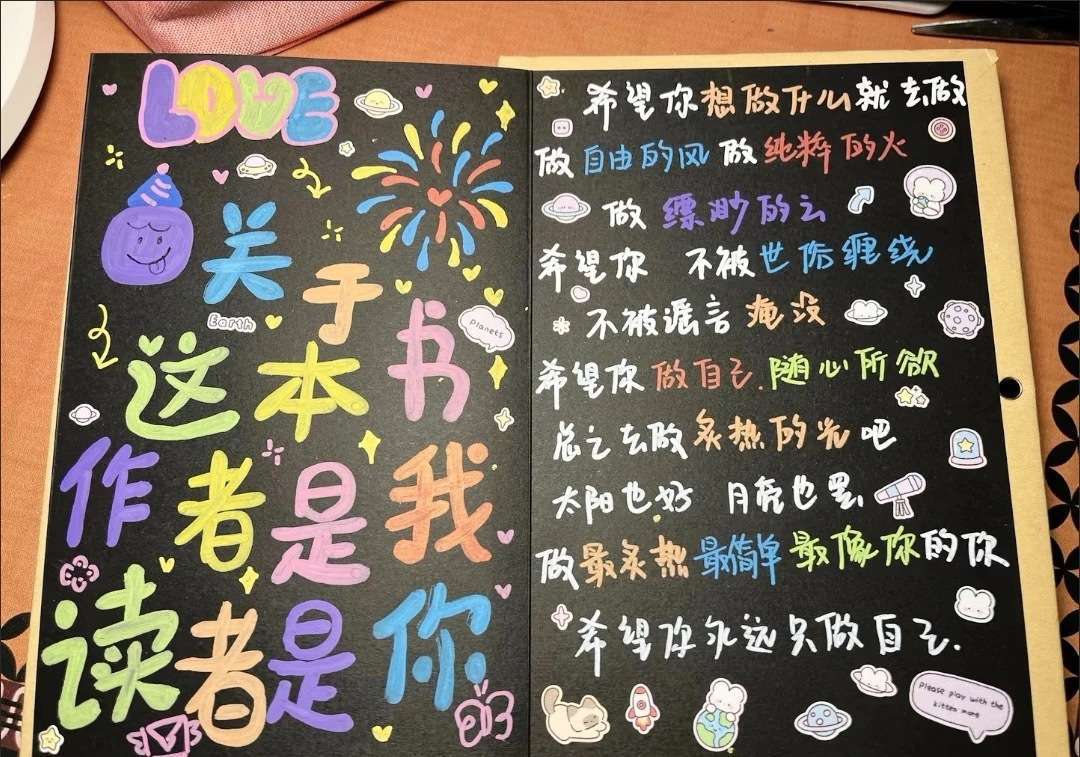 LOVE
关
于
Earth
planets
这本书
作者是我
读者是你
希望你想做什么就去做
做自由的风 做纯粹的火
做 缥渺的云
希望你 不被世俗缠绕
不被谣言 淹没
希望你 做自己.随心所欲
总之去做炙热的光吧
太阳也好 月亮也罢
做最炙热 最简单 最像你的你
希望你永远只做自己.
Please play with the
kitten more